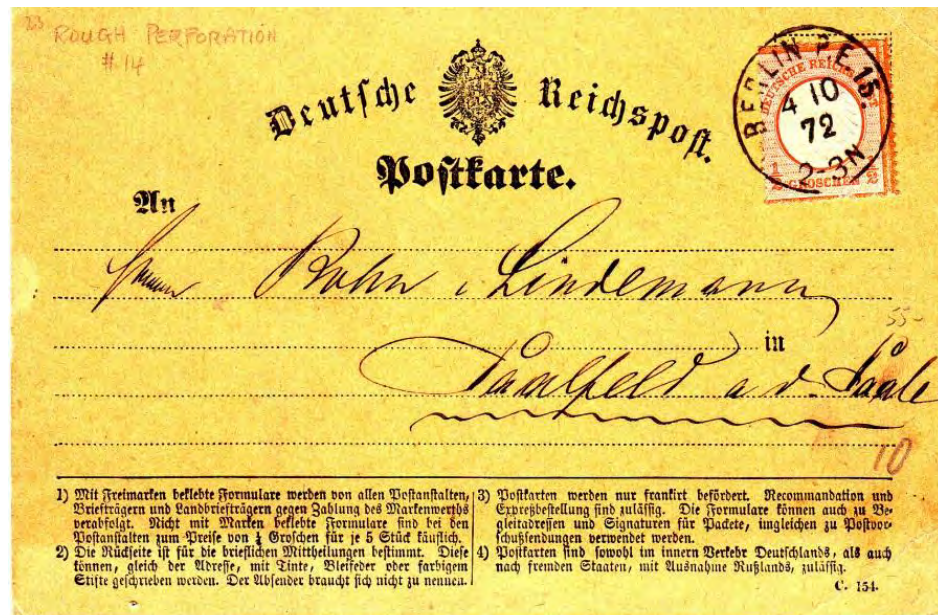 23
ROUGH PERFORATION
#14
Deutsche Reichspost.
Postkarte.
BERLIN P.E. 15.
4 10
72
2-3N
DEUTSCHE REICHS POST
1/2 GROSCHEN 1/2
An
Herrn Bohn & Lindemann
55-
in
Saalfeld a. d. Saale
10
1) Mit Freimarken beklebte Formulare werden von allen Postanstalten,
Briefträgern und Landbriefträgern gegen Zahlung des Markenwerths
verabfolgt. Nicht mit Marken beklebte Formulare sind bei den
Postanstalten zum Preise von ¼ Groschen für je 5 Stück käuflich.
2) Die Rückseite ist für die brieflichen Mittheilungen bestimmt. Diese
können, gleich der Adresse, mit Tinte, Bleifeder oder farbigem
Stifte geschrieben werden. Der Absender braucht sich nicht zu nennen.
3) Postkarten werden nur frankirt befördert. Recommandation und
Expreßbestellung sind zulässig. Die Formulare können auch zu Be-
gleitadressen und Signaturen für Packete, imgleichen zu Postvor-
schußsendungen verwendet werden.
4) Postkarten sind sowohl im innern Verkehr Deutschlands, als auch
nach fremden Staaten, mit Ausnahme Rußlands, zulässig.
C. 154.